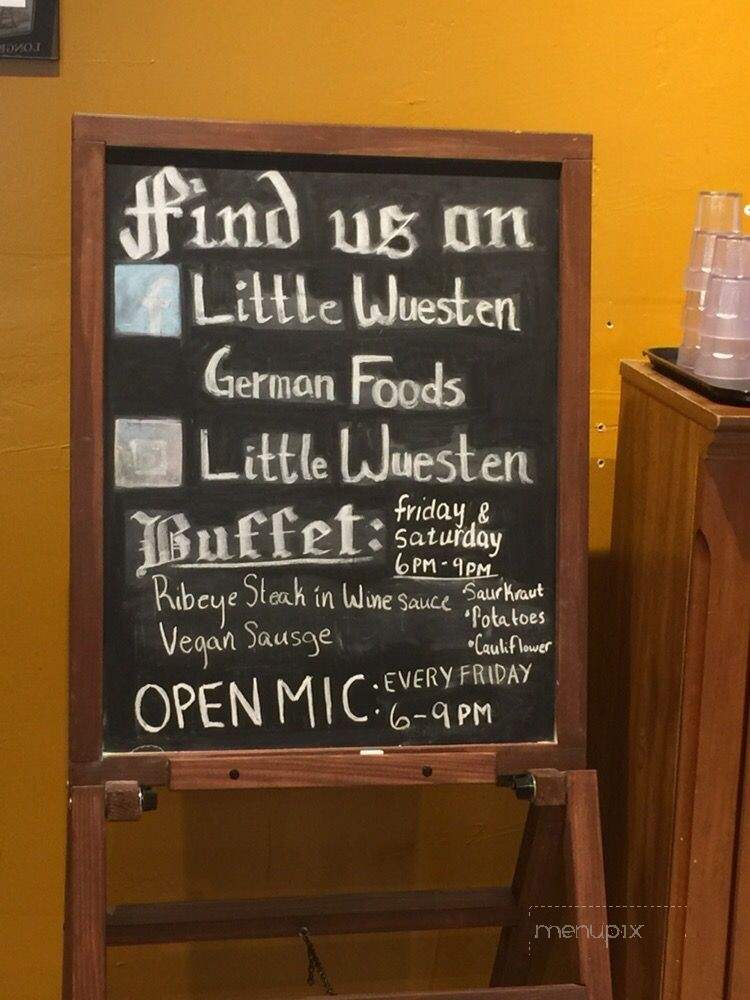 Find us on
f Little Wuesten
German Foods
Little Wuesten
Buffet: friday &
saturday
6PM-9PM
Ribeye Steak in Wine sauce
Vegan Sausge
•Saurkraut
•Potatoes
•Cauliflower
OPEN MIC: EVERY FRIDAY
6-9PM
menupix